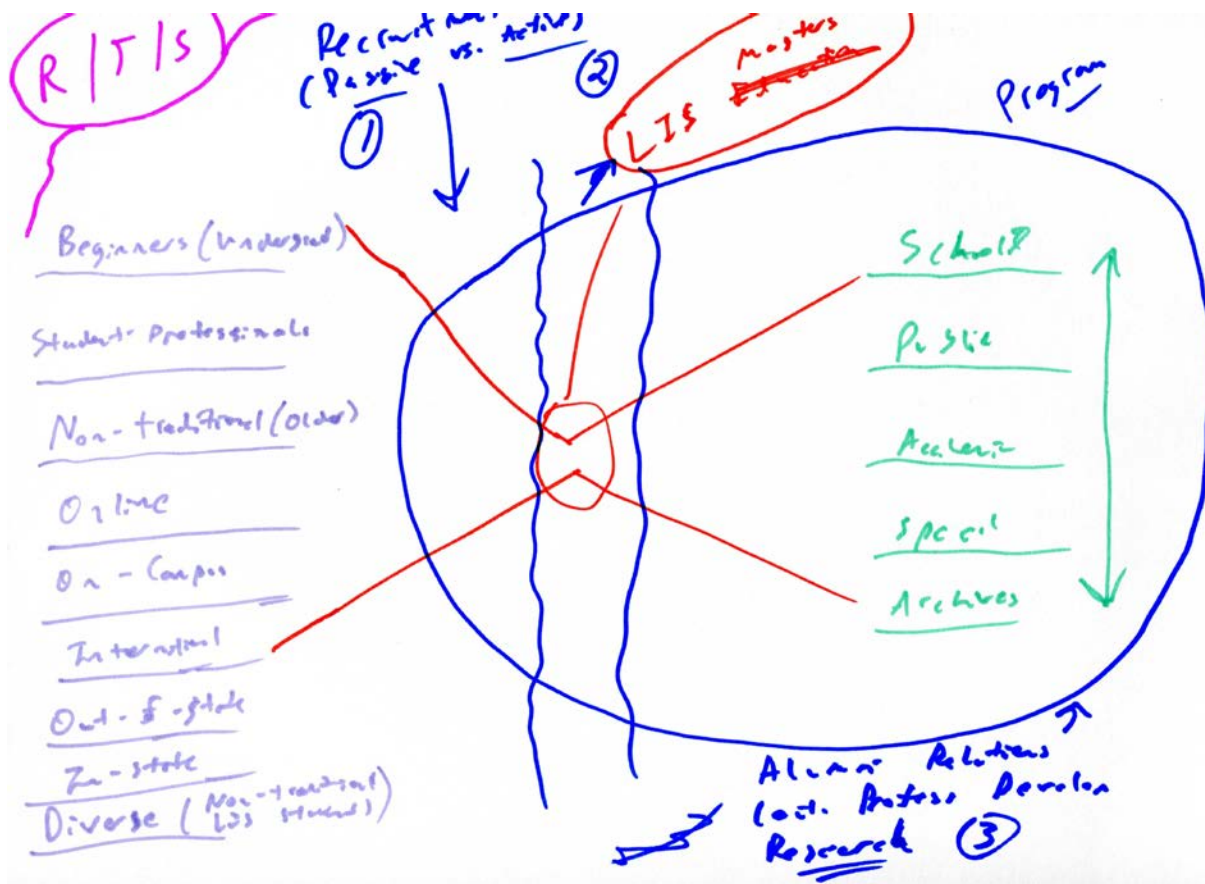 R/T/S
(Passive vs. Active)
①
②
LIS Masters
Program
Beginners (Undergrad)
Student-Professionals
Non-traditional (Older)
Online
On-Campus
International
Out-of-state
In-state
Diverse (Non-traditional
LIS students)
Schools
Public
Academic
Special
Archives
Alumni Relations
Profess Develop
Research ③